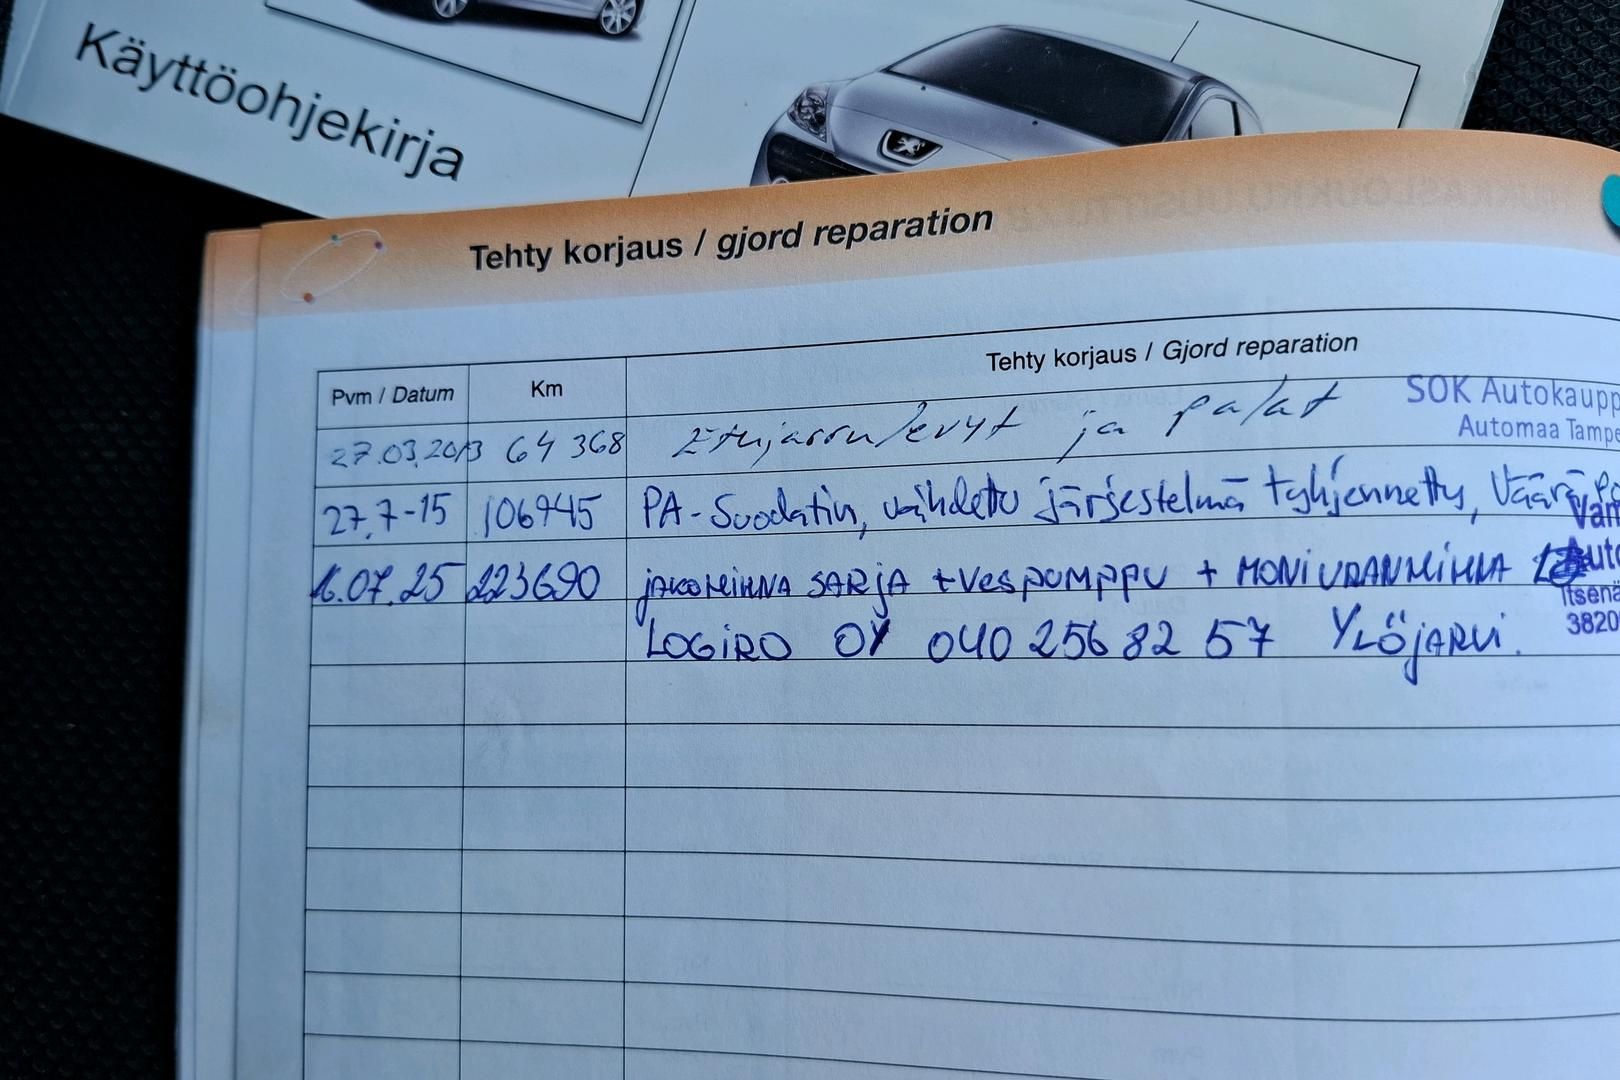 Käyttöohjekirja
Tehty korjaus / gjord reparation
Pvm / Datum Km Tehty korjaus / Gjord reparation
27.03.2013 64 368 Etujarrulevyt ja palat SOK Autokaupp
Automaa Tampe
27.7-15 106945 PA-Suodatin, vaihdettu järjestelmä tyhjennetty, Väärä
Van
16.07.25 223690 jAKOHiHNA SARjA + Vesipumppu + MONiURANHiHNA
Auto
Itsenä
3820
LOGiRO OY 040 256 82 57 YLÖjARVi.